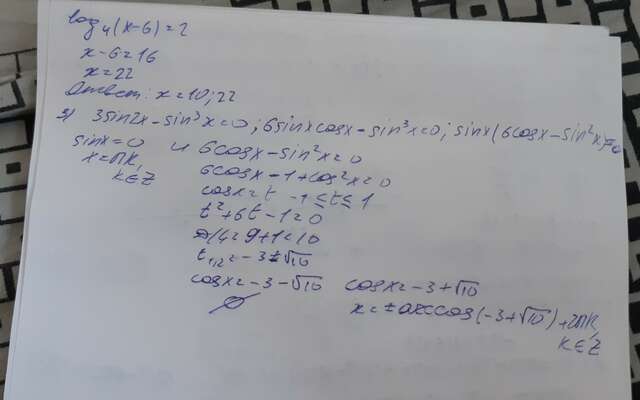 log₄(x-6)=2
x-6=16
x=22
Ответ: x=10; 22
3sin2x-sin³x=0; 6sinxcosx-sin³x=0; sinx(6cosx-sin²x)=0
sinx=0 и 6cosx-sin²x=0
x=πk, 6cosx-1+cos²x=0
k∈Z cosx=t -1≤t≤1
t²+6t-1=0
D/4=9+1=10
t₁,₂=-3±√10
cosx=-3-√10 cosx=-3+√10
∅ x=±arccos(-3+√10)+2πk,
k∈Z